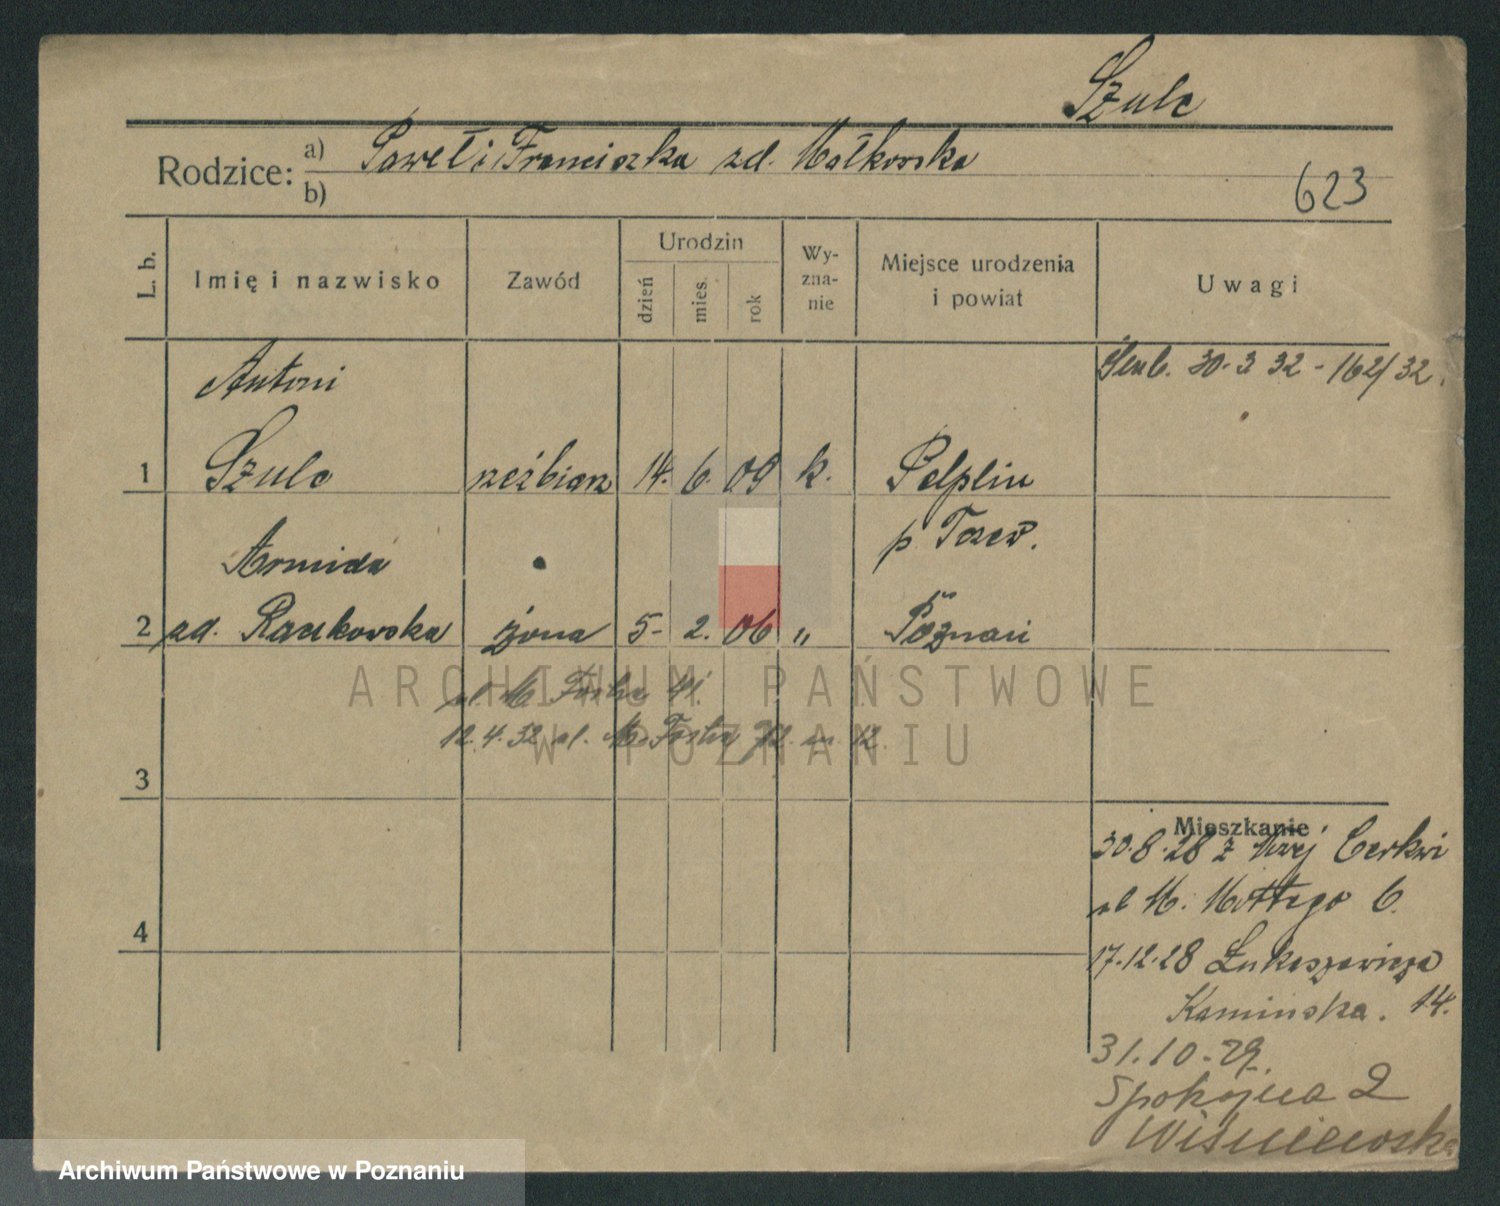 Szulc
Rodzice: a) Paweł i Franciszka zd. Małkowska
b)
623
L. b. Imię i nazwisko Zawód Urodzin dzień mies. rok Wy-zna-nie Miejsce urodzenia i powiat Uwagi
Antoni
ślub. 30.3 32 - 162/32.
1 Szulc rzeźbiarz 14. 6. 09 k. Pelplin
p Tczew.
Armida
2 zd. Raczkowska żona 5- 2. 06 " Poznań
ul. M. Focha 41.
12.4.32 ul. M. Focha 72 m. 12
3
Mieszkanie
30.8.28 z Cerkwi
ul M. Mottego 6.
4
17.12.28 Łukaszewicza
Kamińska. 14.
31.10.29.
Spokojna 2
Wiśniewska
ARCHIWUM PAŃSTWOWE
W POZNANIU
Archiwum Państwowe w Poznaniu